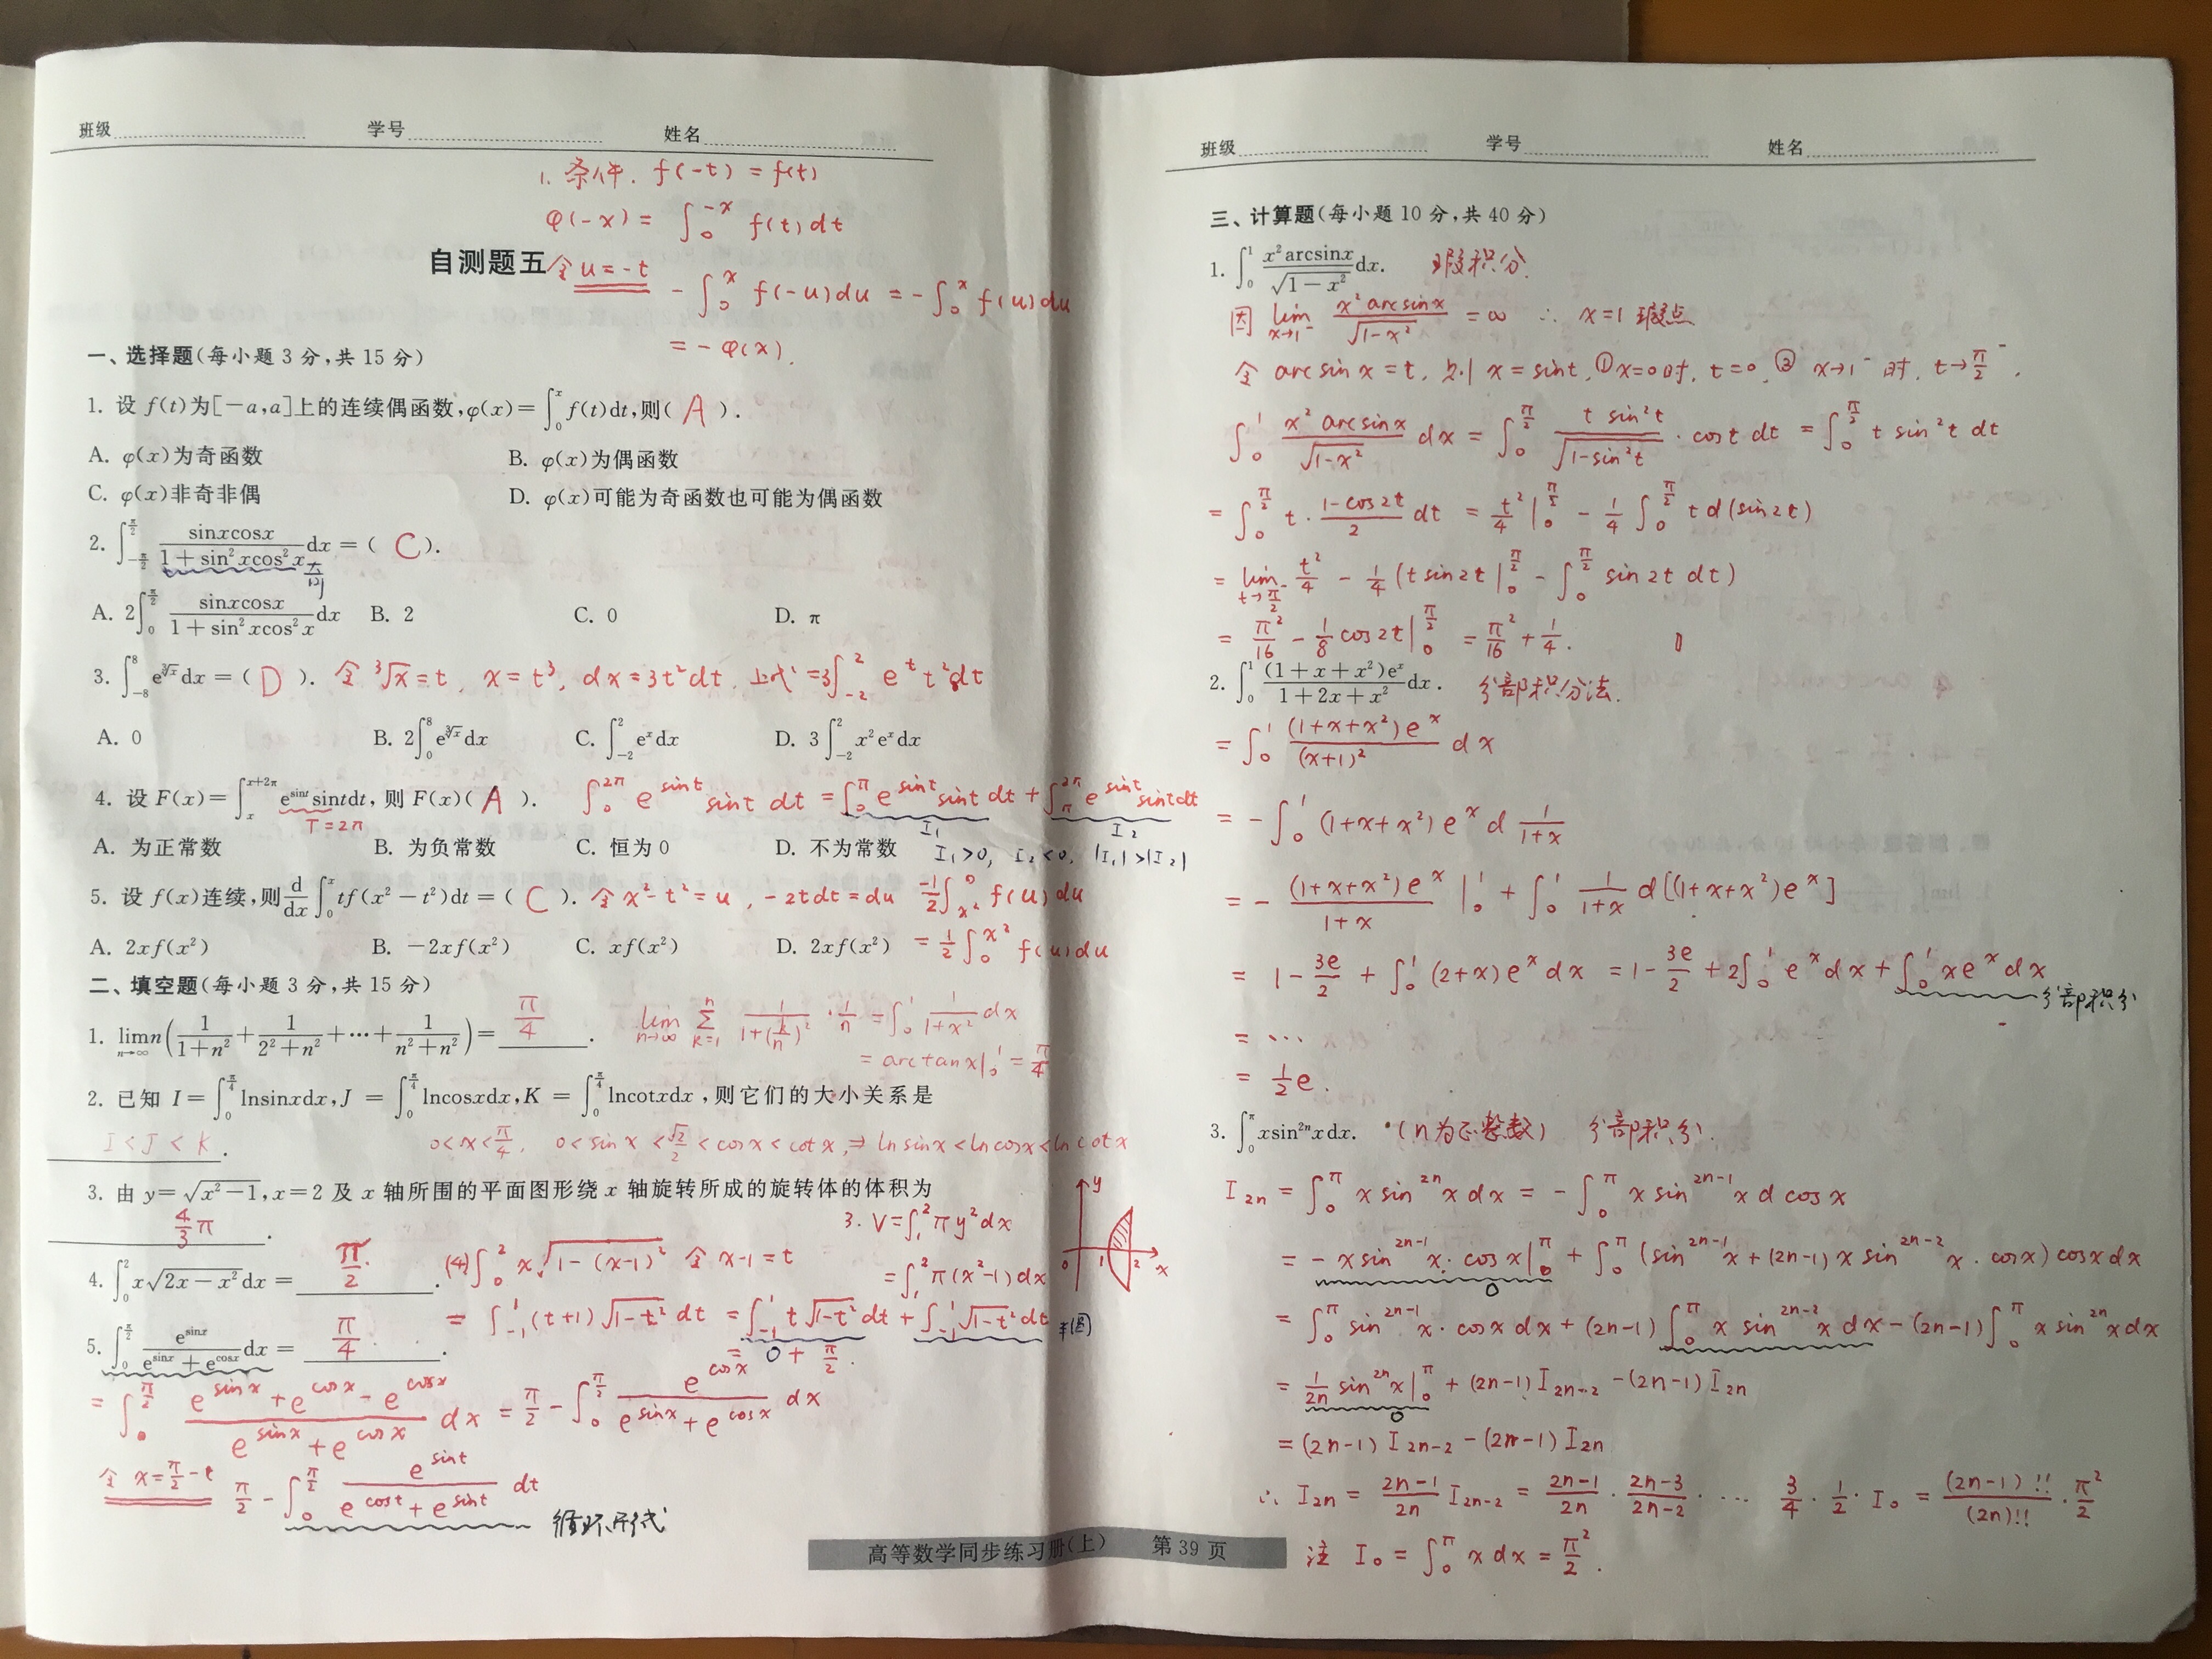 班级 学号 姓名
1. 条件. f(-t) = f(t)
φ(-x) = ∫₀^{-x} f(t)dt
自测题五
令 u=-t
-∫₀^x f(-u)du = -∫₀^x f(u)du
= -φ(x).
一、选择题(每小题 3 分,共 15 分)
1. 设 f(t)为[-a,a]上的连续偶函数,φ(x)=∫₀^x f(t)dt,则( A ).
A. φ(x)为奇函数 B. φ(x)为偶函数
C. φ(x)非奇非偶 D. φ(x)可能为奇函数也可能为偶函数
2. ∫_{-π/2}^{π/2} sinxcosx/(1+sin²xcos²x) dx=( C ).
A. 2∫₀^{π/2} sinxcosx/(1+sin²xcos²x) dx B. 2 C. 0 D. π
3. ∫_{-8}^{8} e^{∛x}dx=( D ). 令 ∛x=t, x=t³, dx=3t²dt, 上式=3∫_{-2}^{2} e^t t²dt
A. 0 B. 2∫₀^8 e^{∛x}dx C. ∫_{-2}^{2} e^x dx D. 3∫_{-2}^{2} x²e^x dx
4. 设 F(x)=∫_x^{x+2π} e^{sint}sintdt,则 F(x)( A ). ∫₀^{2π} e^{sint} sint dt = ∫₀^π e^{sint} sint dt + ∫_π^{2π} e^{sint} sint dt
T=2π I₁ I₂
A. 为正常数 B. 为负常数 C. 恒为 0 D. 不为常数 I₁>0, I₂<0, |I₁|>|I₂|
5. 设 f(x)连续,则 d/dx ∫₀^x tf(x²-t²)dt=( C ). 令 x²-t²=u, -2tdt=du -1/2 ∫_{x²}^0 f(u)du
A. 2xf(x²) B. -2xf(x²) C. xf(x²) D. 2xf(x²) = 1/2 ∫₀^{x²} f(u)du
二、填空题(每小题 3 分,共 15 分)
1. lim_{n→∞} n(1/(1+n²)+1/(2²+n²)+⋯+1/(n²+n²))= π/4 . lim_{n→∞} Σ_{k=1}^n 1/(1+(k/n)²)·1/n = ∫₀¹ 1/(1+x²) dx
= arctanx|₀¹ = π/4
2. 已知 I=∫₀^{π/4} lnsinxdx,J=∫₀^{π/4} lncosxdx,K=∫₀^{π/4} lncotxdx,则它们的大小关系是
I<J<K . 0<x<π/4, 0<sinx<√2/2<cosx<cotx,⇒ lnsinx<lncosx<lncotx
3. 由 y=√(x²-1),x=2 及 x 轴所围的平面图形绕 x 轴旋转所成的旋转体的体积为
4/3 π . 3. V=∫₁² πy²dx
=∫₁² π(x²-1)dx
y 0 1 2 x
4. ∫₀² x√(2x-x²)dx= π/2 . (4) ∫₀² x√(1-(x-1)²) 令 x-1=t
= ∫_{-1}^1 (t+1)√(1-t²) dt = ∫_{-1}^1 t√(1-t²)dt + ∫_{-1}^1 √(1-t²)dt 半圆
= 0 + π/2.
5. ∫₀^{π/2} e^{sinx}/(e^{sinx}+e^{cosx}) dx= π/4 .
= ∫₀^{π/2} (e^{sinx}+e^{cosx}-e^{cosx})/(e^{sinx}+e^{cosx}) dx = π/2 - ∫₀^{π/2} e^{cosx}/(e^{sinx}+e^{cosx}) dx
令 x=π/2-t π/2 - ∫₀^{π/2} e^{sint}/(e^{cost}+e^{sint}) dt 循环形式
高等数学同步练习册(上) 第 39 页
班级 学号 姓名
三、计算题(每小题 10 分,共 40 分)
1. ∫₀¹ x²arcsinx/√(1-x²) dx. 瑕积分.
因 lim_{x→1⁻} x²arcsinx/√(1-x²) = ∞ ∴ x=1 瑕点
令 arcsinx=t, 则 x=sint, ①x=0时, t=0, ② x→1⁻时, t→π/2⁻.
∫₀¹ x²arcsinx/√(1-x²) dx = ∫₀^{π/2} t sin²t/√(1-sin²t) · cost dt = ∫₀^{π/2} t sin²t dt
= ∫₀^{π/2} t·(1-cos2t)/2 dt = t²/4|₀^{π/2} - 1/4 ∫₀^{π/2} t d(sin2t)
= lim_{t→π/2⁻} t²/4 - 1/4 (t sin2t|₀^{π/2} - ∫₀^{π/2} sin2t dt)
= π²/16 - 1/8 cos2t|₀^{π/2} = π²/16 + 1/4.
2. ∫₀¹ (1+x+x²)e^x/(1+2x+x²) dx. 分部积分法.
= ∫₀¹ (1+x+x²)e^x/(x+1)² dx
= -∫₀¹ (1+x+x²)e^x d 1/(1+x)
= -(1+x+x²)e^x/(1+x)|₀¹ + ∫₀¹ 1/(1+x) d[(1+x+x²)e^x]
= 1-3e/2 + ∫₀¹ (2+x)e^x dx = 1-3e/2 + 2∫₀¹ e^x dx + ∫₀¹ xe^x dx 分部积分
= ⋯
= 1/2 e.
3. ∫₀^π xsin^{2n}xdx. (n为正整数) 分部积分.
I_{2n} = ∫₀^π x sin^{2n}x dx = -∫₀^π x sin^{2n-1}x d cosx
= -x sin^{2n-1}x·cosx|₀^π + ∫₀^π (sin^{2n-1}x+(2n-1)x sin^{2n-2}x·cosx)cosx dx
0
= ∫₀^π sin^{2n-1}x·cosx dx + (2n-1)∫₀^π x sin^{2n-2}x dx - (2n-1)∫₀^π x sin^{2n}x dx
= 1/2n sin^{2n}x|₀^π + (2n-1)I_{2n-2} - (2n-1)I_{2n}
0
= (2n-1)I_{2n-2} - (2n-1)I_{2n}
∴ I_{2n} = (2n-1)/2n I_{2n-2} = (2n-1)/2n · (2n-3)/(2n-2) · ⋯ 3/4 · 1/2 · I₀ = (2n-1)!!/(2n)!! · π²/2
注 I₀ = ∫₀^π x dx = π²/2.